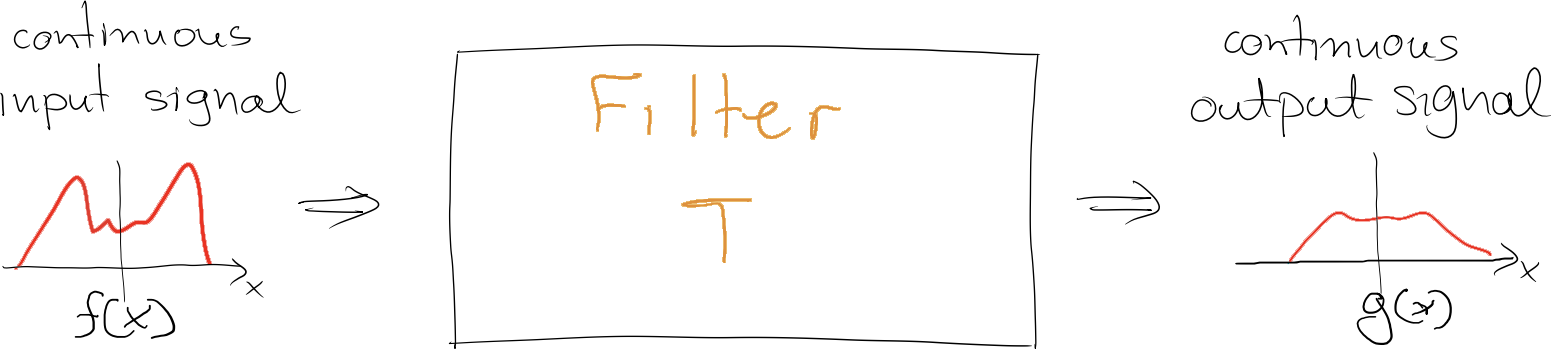 continuous
input signal
x
f(x)
Filter
T
continuous
output signal
x
g(x)